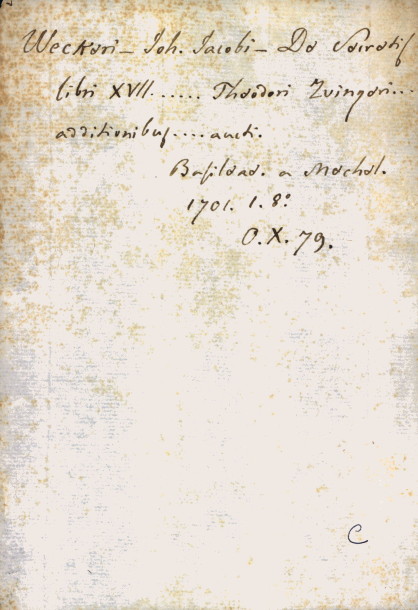 Weckeri_ Joh. Jacobi_ De Secretis
libri XVII...... Theodori Zvingeri...
additionibus.... aucti.
Basileae. a Mechel.
1701. 1. 8º
O. X. 79.
C